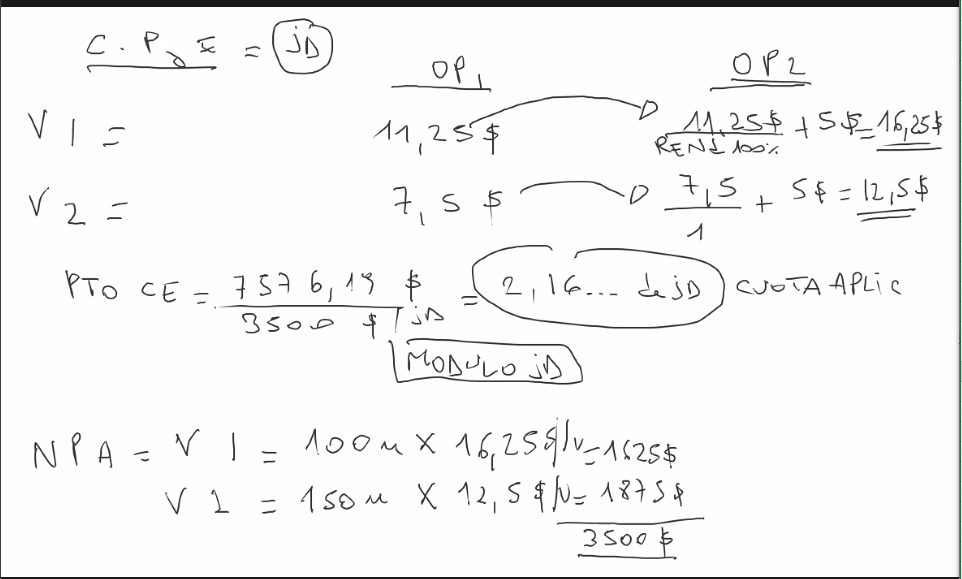 C.P y I = jD
OP1 OP2
V1 = 11,25$ 11,25$ + 5$ = 16,25$
REND 100%
V2 = 7,5$ 7,5 + 5$ = 12,5$
1
PTO CE = 7576,19 $ = 2,16... de jD CUOTA APLIC
3500 $/jD
MODULO jD
NPA = V1 = 100u X 16,25$/u = 1625$
V2 = 150u X 12,5$/u = 1875$
3500$